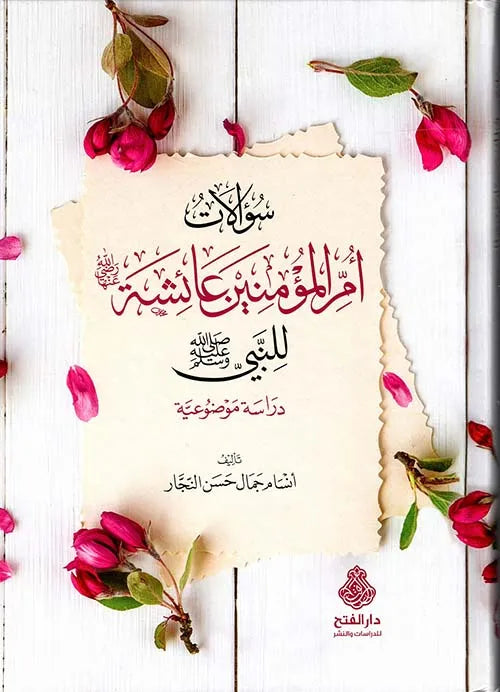 سؤالات
أم المؤمنين عائشة رضي الله عنها
للنبي صلى الله عليه وسلم
دراسة موضوعية
تأليف
أنسام جمال حسن النجار
دار الفتح
للدراسات والنشر